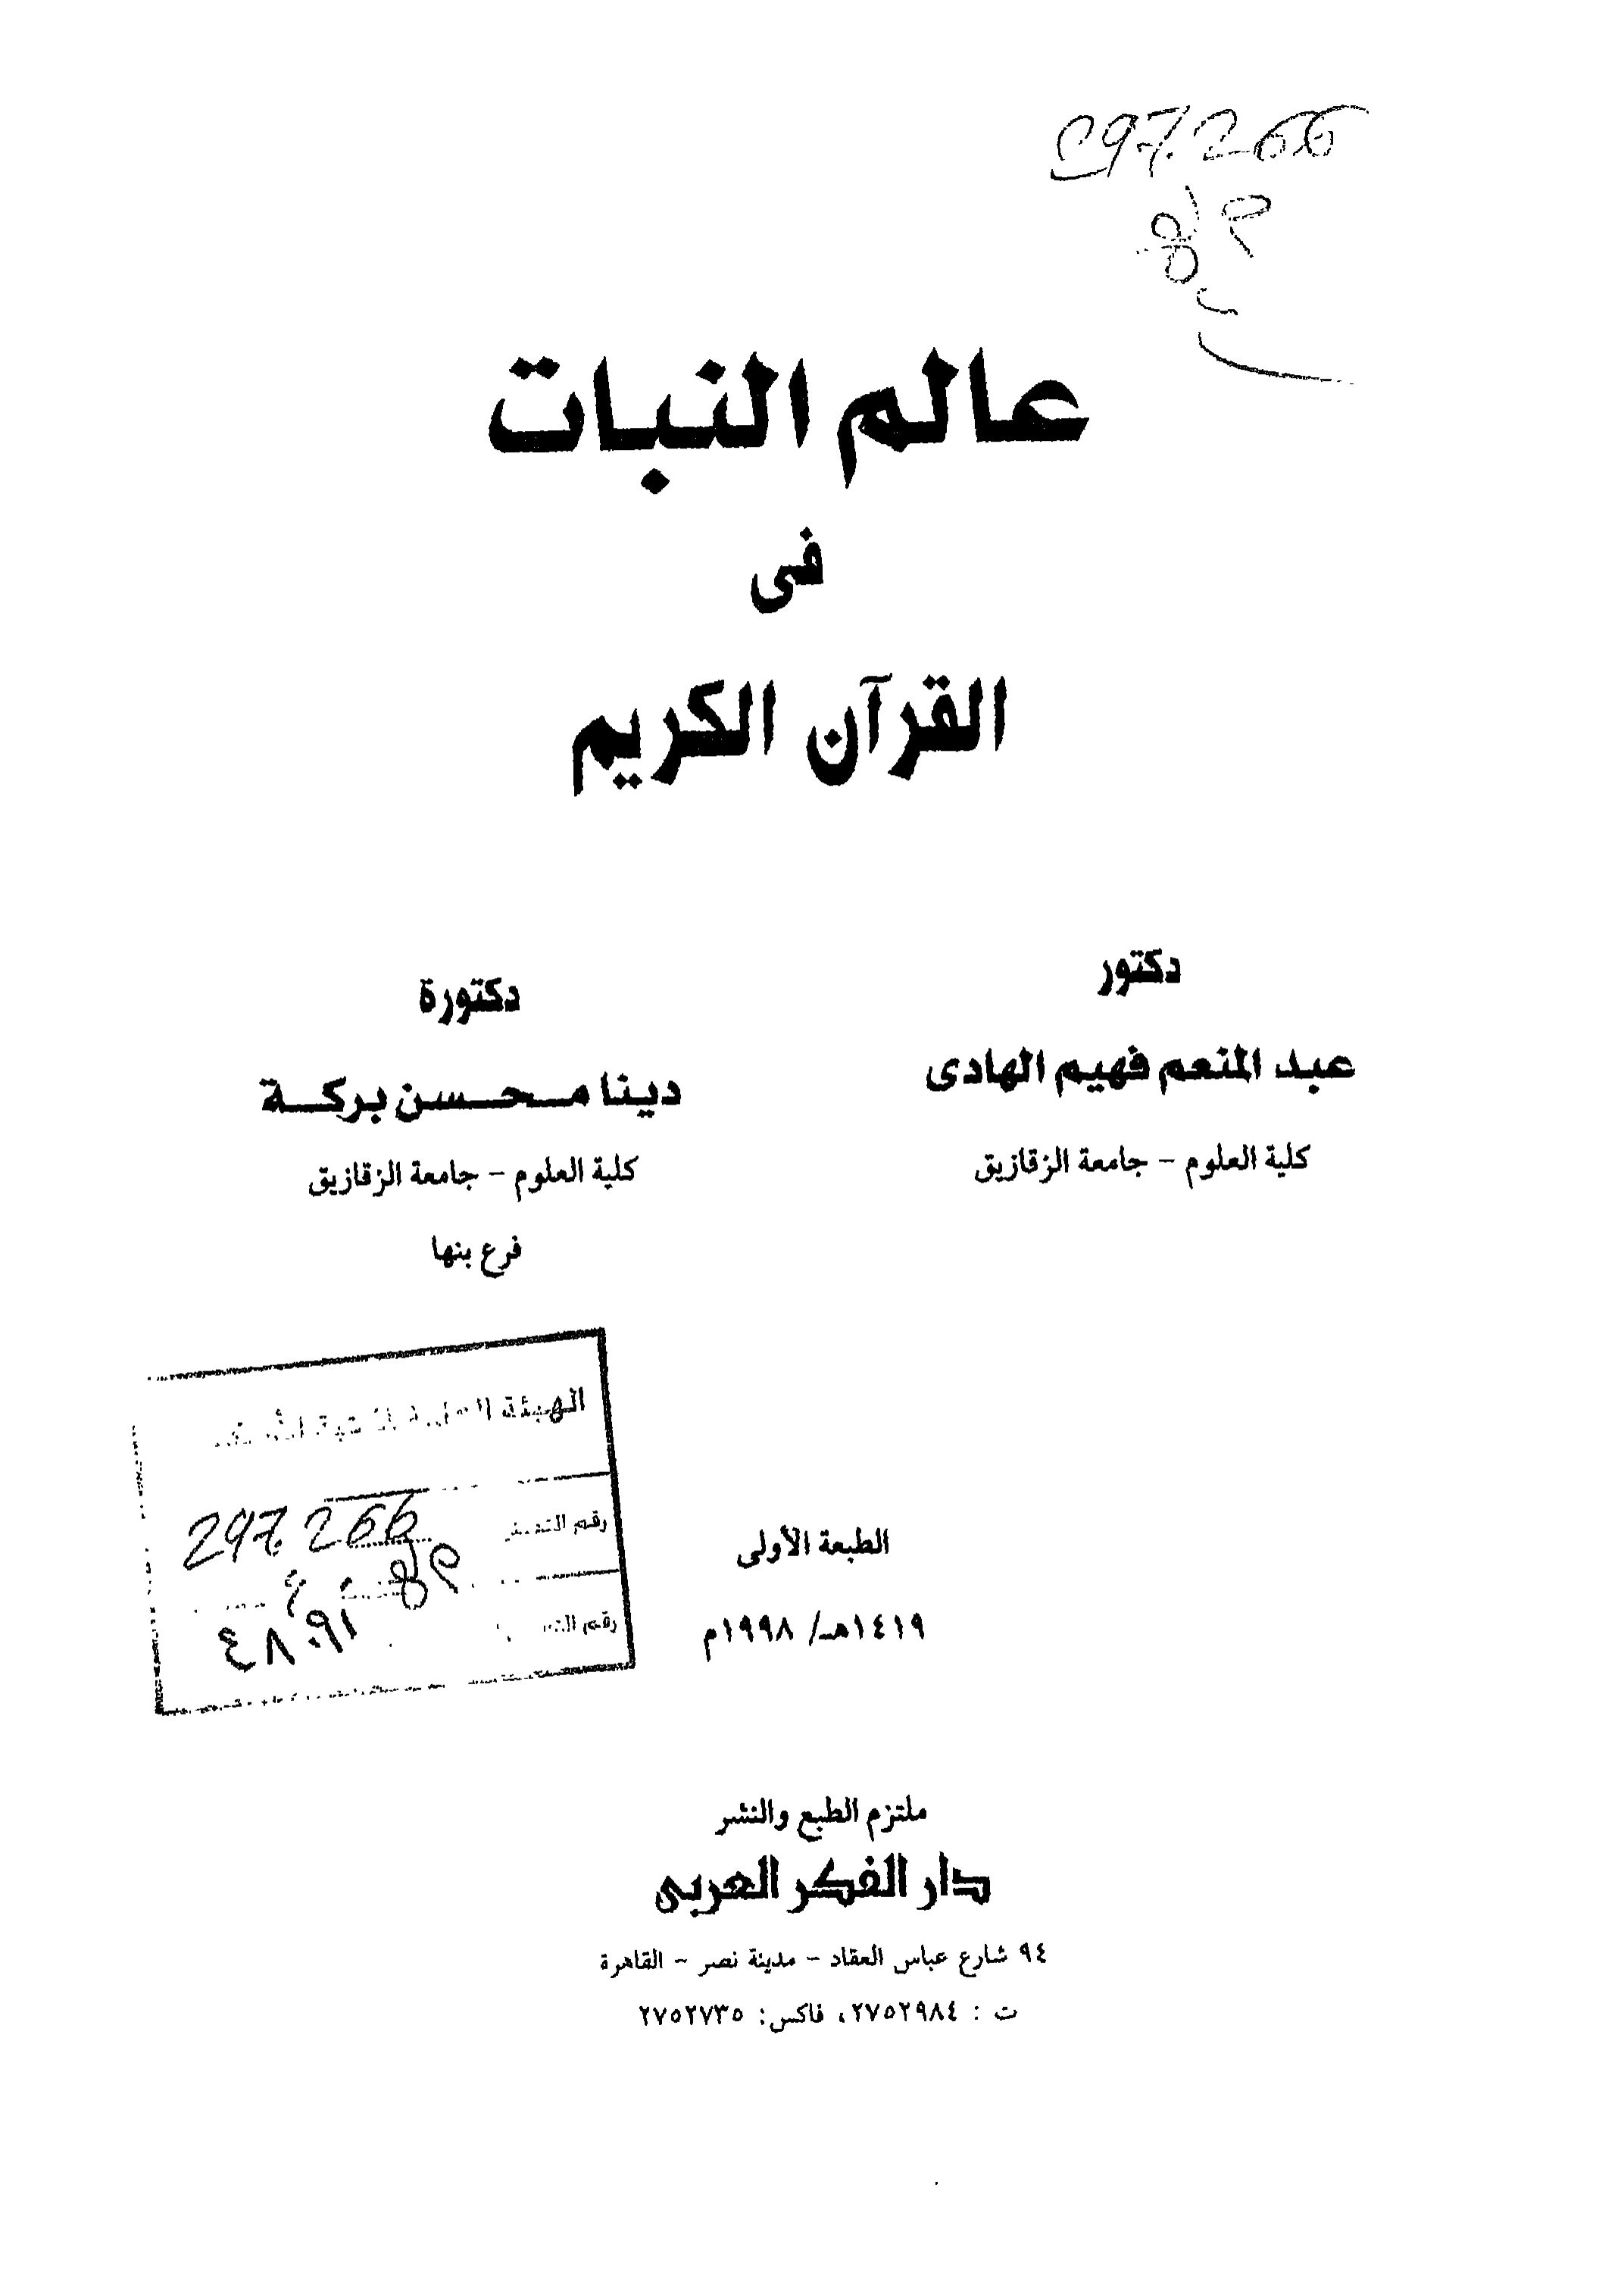 297.266
عالم النبات
فى
القرآن الكريم
دكتور
عبد المنعم فهيم الهادى
كلية العلوم - جامعة الزقازيق
دكتورة
دينا محسن بركة
كلية العلوم - جامعة الزقازيق
فرع بنها
الهيئة
رقم
297.266
رقم
الطبعة الأولى
١٤١٩هـ/ ١٩٩٨م
ملتزم الطبع والنشر
دار الفكر العربى
٩٤ شارع عباس العقاد - مدينة نصر - القاهرة
ت : ٢٧٥٢٩٨٤، فاكس: ٢٧٥٢٧٣٥